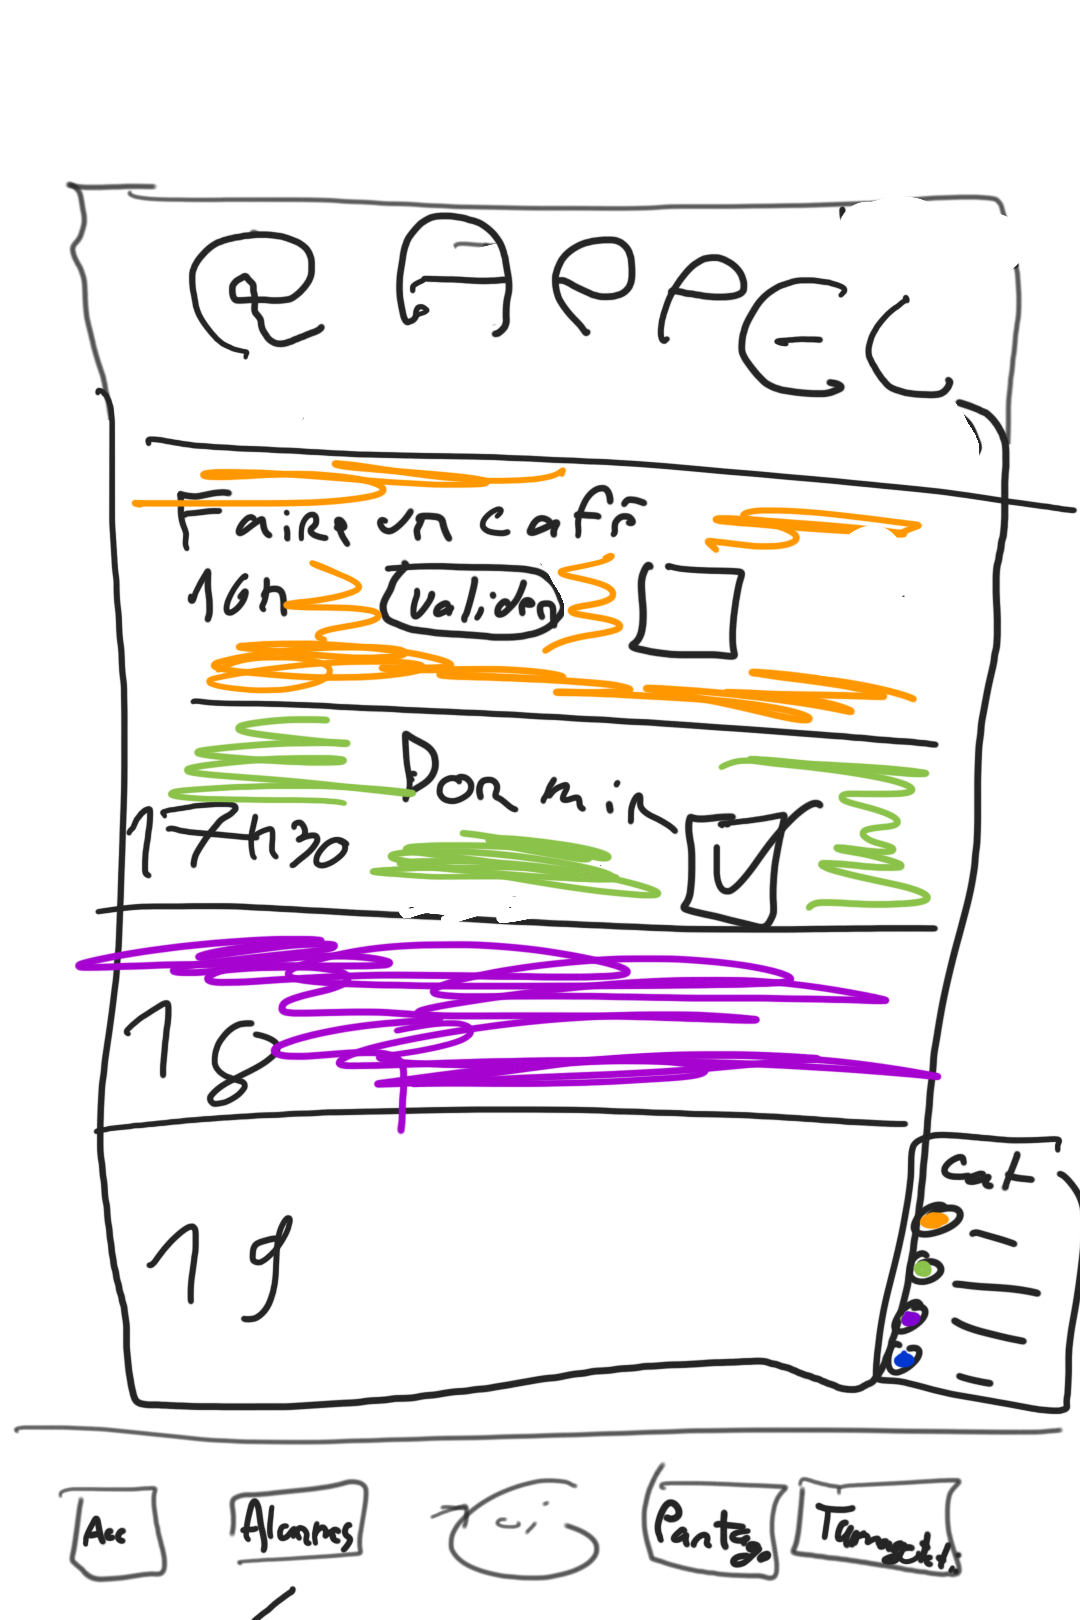 RAPPEL
Faire un café
16h valider
Dormir
17h30
18
19
Cat
Acc Alarmes Partage Tamagotchi